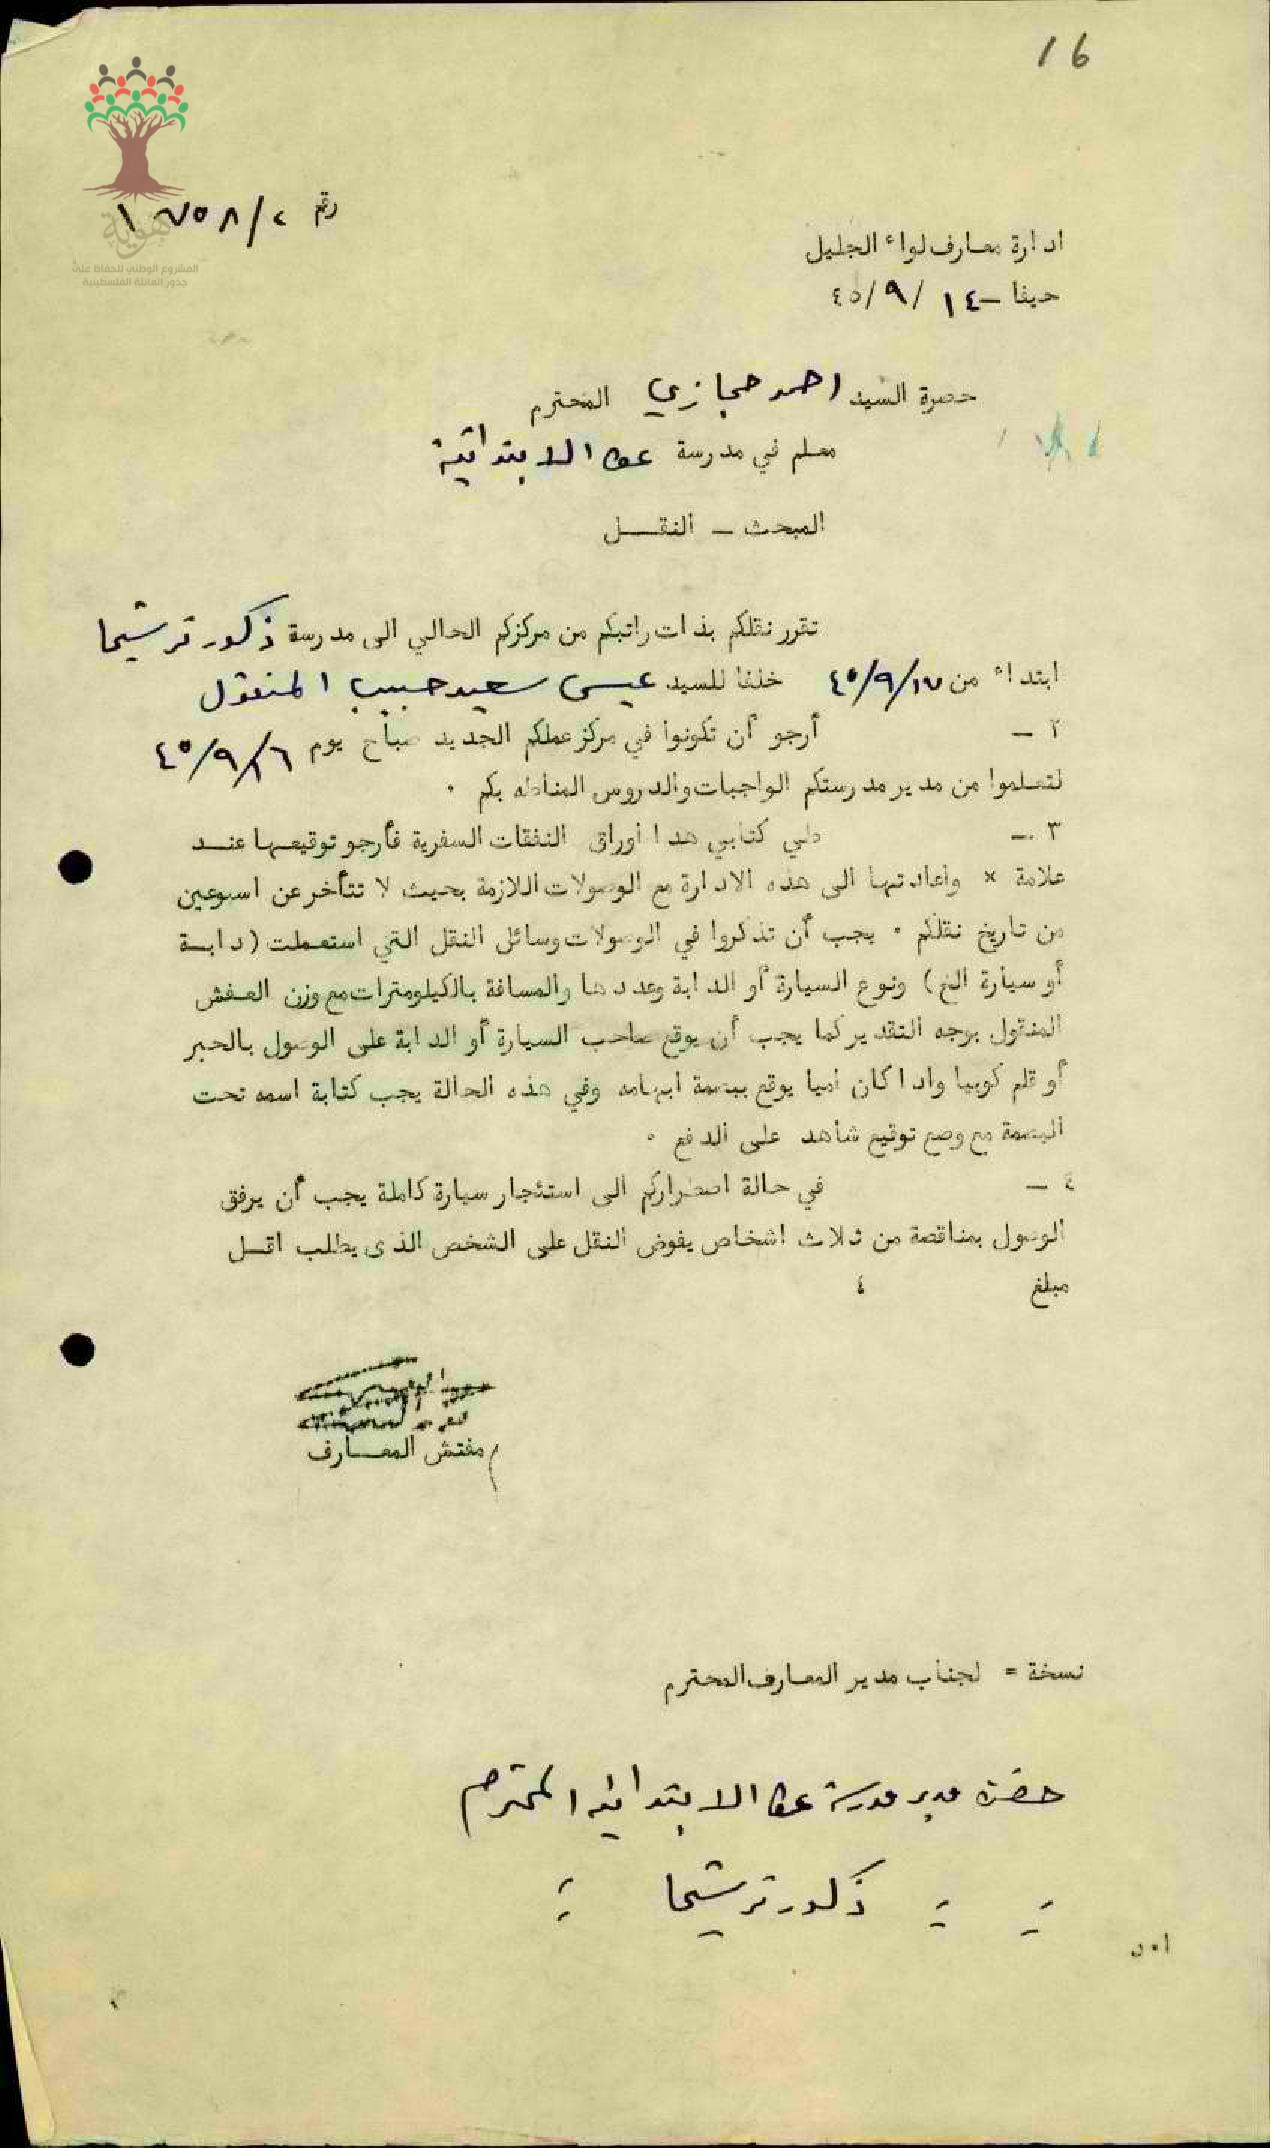 16
هوية
المشروع الوطني للحفاظ على
جذور العائلة الفلسطينية
رقم
ادارة معارف لواء الجليل
حيفا - ١٤ /٩/ ٤٥
حضرة السيد احمد حجازي المحترم
معلم في مدرسة عكا الابتدائية
المبحث - النقل
تقرر نقلكم بذات راتبكم من مركزكم الحالي الى مدرسة ذكور ترشيحا
ابتداء من ٤٥/٩/١٧ خلفا للسيد عيسى سعيد حبيب المنقول
٢ - أرجو أن تكونوا في مركز عملكم الجديد صباح يوم ٤٥/٩/١٦
لتعلموا من مدير مدرستكم الواجبات والدروس المناطه بكم ٠
٣ - طي كتابي هذا أوراق النفقات السفرية فأرجو توقيعها عند
علامة × واعادتها الى هذه الادارة مع الوصولات اللازمة بحيث لا تتأخر عن اسبوعين
من تاريخ نقلكم ٠ يجب أن تذكروا في الوصولات وسائل النقل التي استعملت (دابة
أو سيارة الخ) ونوع السيارة أو الدابة وعددها والمسافة بالكيلومترات مع وزن العفش
المنقول بوجه التقدير كما يجب أن يوقع صاحب السيارة أو الدابة على الوصول بالحبر
أو قلم كوبيا واذا كان اميا يوقع ببصمة ابهامه وفي هذه الحالة يجب كتابة اسمه تحت
البصمة مع وضع توقيع شاهد على الدفع ٠
٤ - في حالة اضطراركم الى استئجار سيارة كاملة يجب أن يرفق
الوصول بمناقصة من ثلاث اشخاص يفوض النقل على الشخص الذى يطلب اقل
مبلغ ٤
مفتش المعارف
نسخة = لجناب مدير المعارف المحترم
حضرة مدير مدرسة عكا الابتدائيه المحترم
= = ذكور ترشيحا =